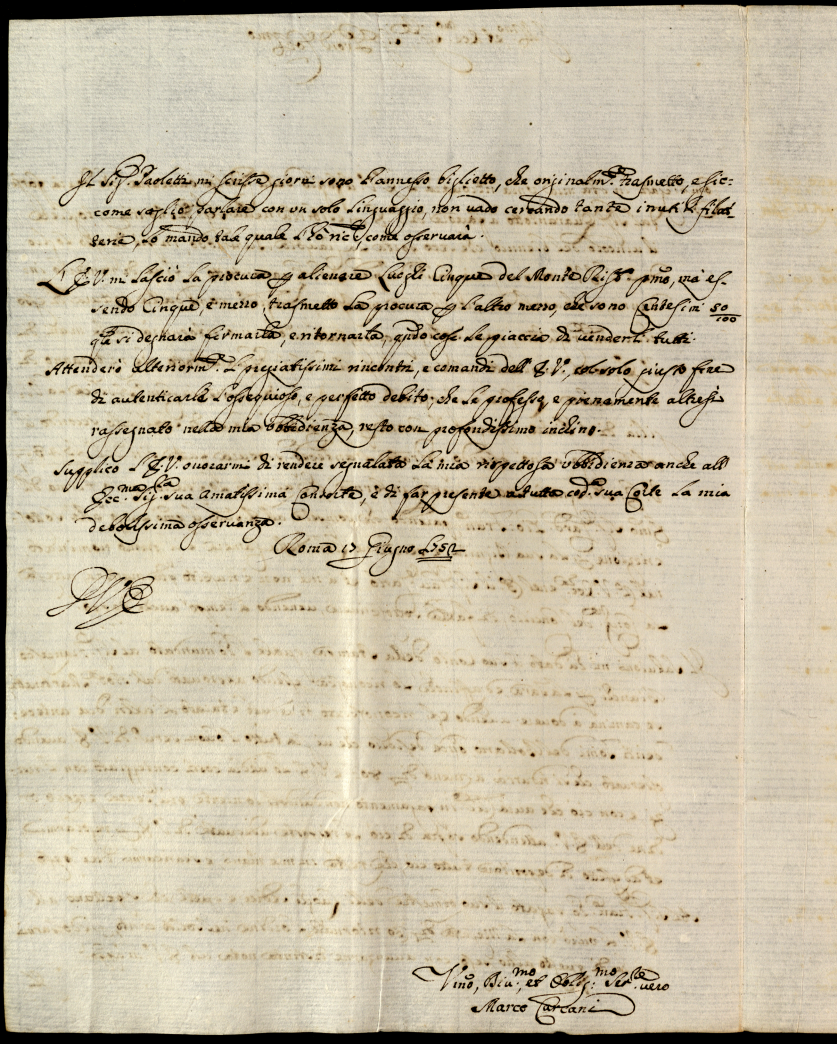 Il Sig.r Paoletti mi scrisse giorni sono l'annesso biglietto, che originalm.te trasmetto, e sic=
come soglio parlare con un solo linguaggio, non vado cercando tante inutili filas
terie, lo mando tale quale l'hò ric.to, come osserverà.
L'E.V. mi lasciò la procura p alienare Luoghi Cinque del Monte pmo, mà es-
sendo Cinque, e mezzo, trasmetto la procura p l'altro mezzo, che sono Centesimi 50/100
che si degnarà firmarla, e ritornarla, qñdo così le piaccia di venderli tutti.
Attenderò ulteriorm.te i pregiatissimi rincontri, e comandi dell'E.V., col solo giusto fine
di autenticarle l'ossequioso, e perfetto debito, che le professo, e pienamente altresì
rassegnato nella mia obbedienza, resto con profondissimo inchino.
Supplico l'E.V. onorarmi di rendere segnalata la mia rispettosa ubbidienza anche all'
Ecc.ma Sig.ra sua Amatissima Consorte, e di far presente a tutta cod.a sua Corte la mia
debolissima osservanza.
Roma 17 Giugno 1752
Vmo, Div.mo, et Obblig.mo Ser.re vero
Marco Carcani